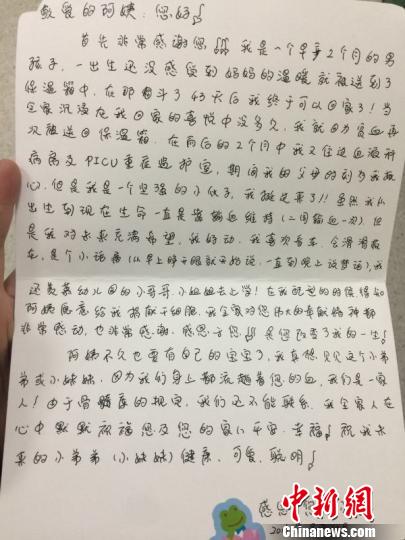 敬爱的阿姨：您好！
首先非常感谢您！！！我是一个早产2个月的男
孩子，一出生还没感受到妈妈的温暖就被送到了
保温箱中，在那奋斗了43天后我终于可以回家了！当
全家沉浸在我回家的喜悦中没多久，我就因为贫血再
次被送回保温箱．在前后的2个月中我又住过血液科
病房及PICU重症监护室，期间我的父母的到为我
心，但是我是一个坚强的小伙子，我挺过来了！！虽然我从
出生到现在生命一直是靠输血维持（二周输血一次）但
是我对未来充满希望，我好动，我喜欢音乐，会滑滑板
车，是个小话痨（从早上睁开眼就开始说，一直到晚上说梦话），我
还羡慕幼儿园的小哥哥小姐姐去上学！在我配型的时候得知
阿姨愿意给我捐献干细胞，我全家对您伟大的奉献精神都
非常感动，也非常感谢，感恩于您！！！是您改变了我的一生！
阿姨不久也要有自己的宝宝了，我在想见见这个小弟
弟或小妹妹，因为我们身上都流趟着您的血，我们是一家
人！由于骨髓库的规定，我们还不能联系，我全家人在
心中默默祝福您及您的家人平安，幸福！祝我未
来的小弟弟（小妹妹）健康、可爱、聪明！
感恩您
20
中新网
Chinanews.com